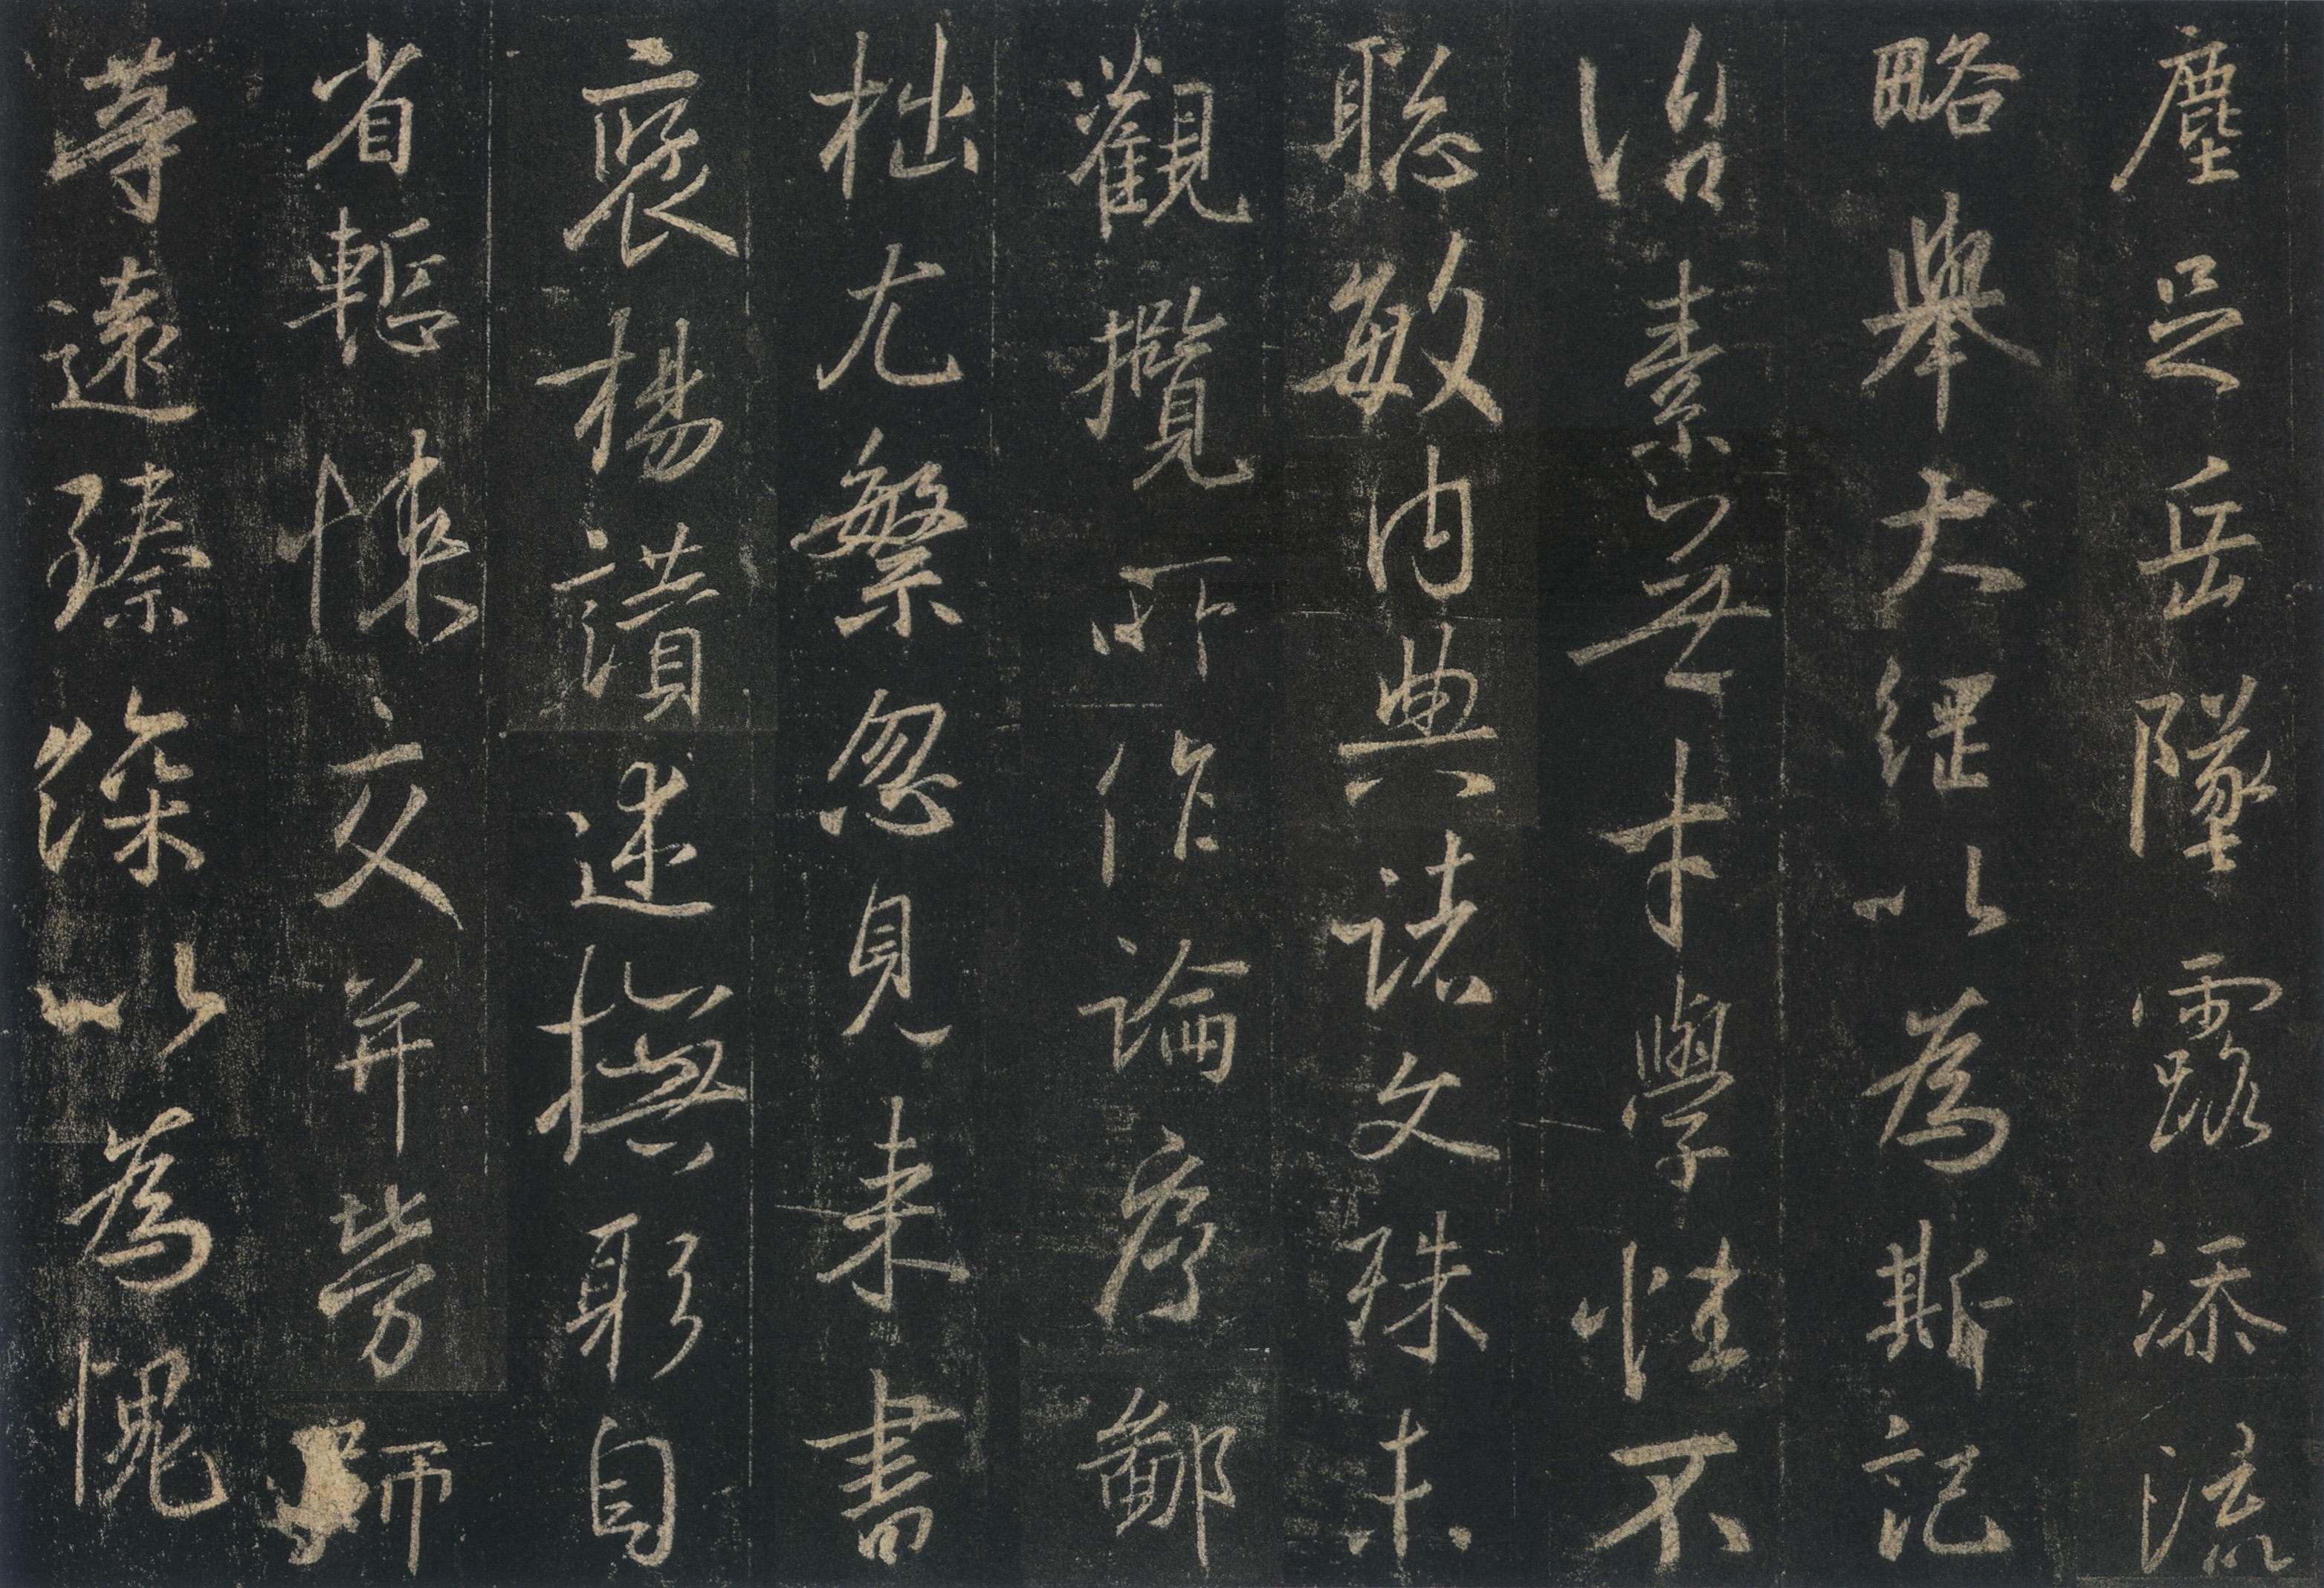 塵足岳墜露添流
略舉大綱以為斯記
治素無才學性不
聡敏內典諸文殊未
觀攬所作論序鄙
拙尤繁忽見來書
褒楊讃述撫躬自
省慙悚交并勞師
等遠臻深以為愧